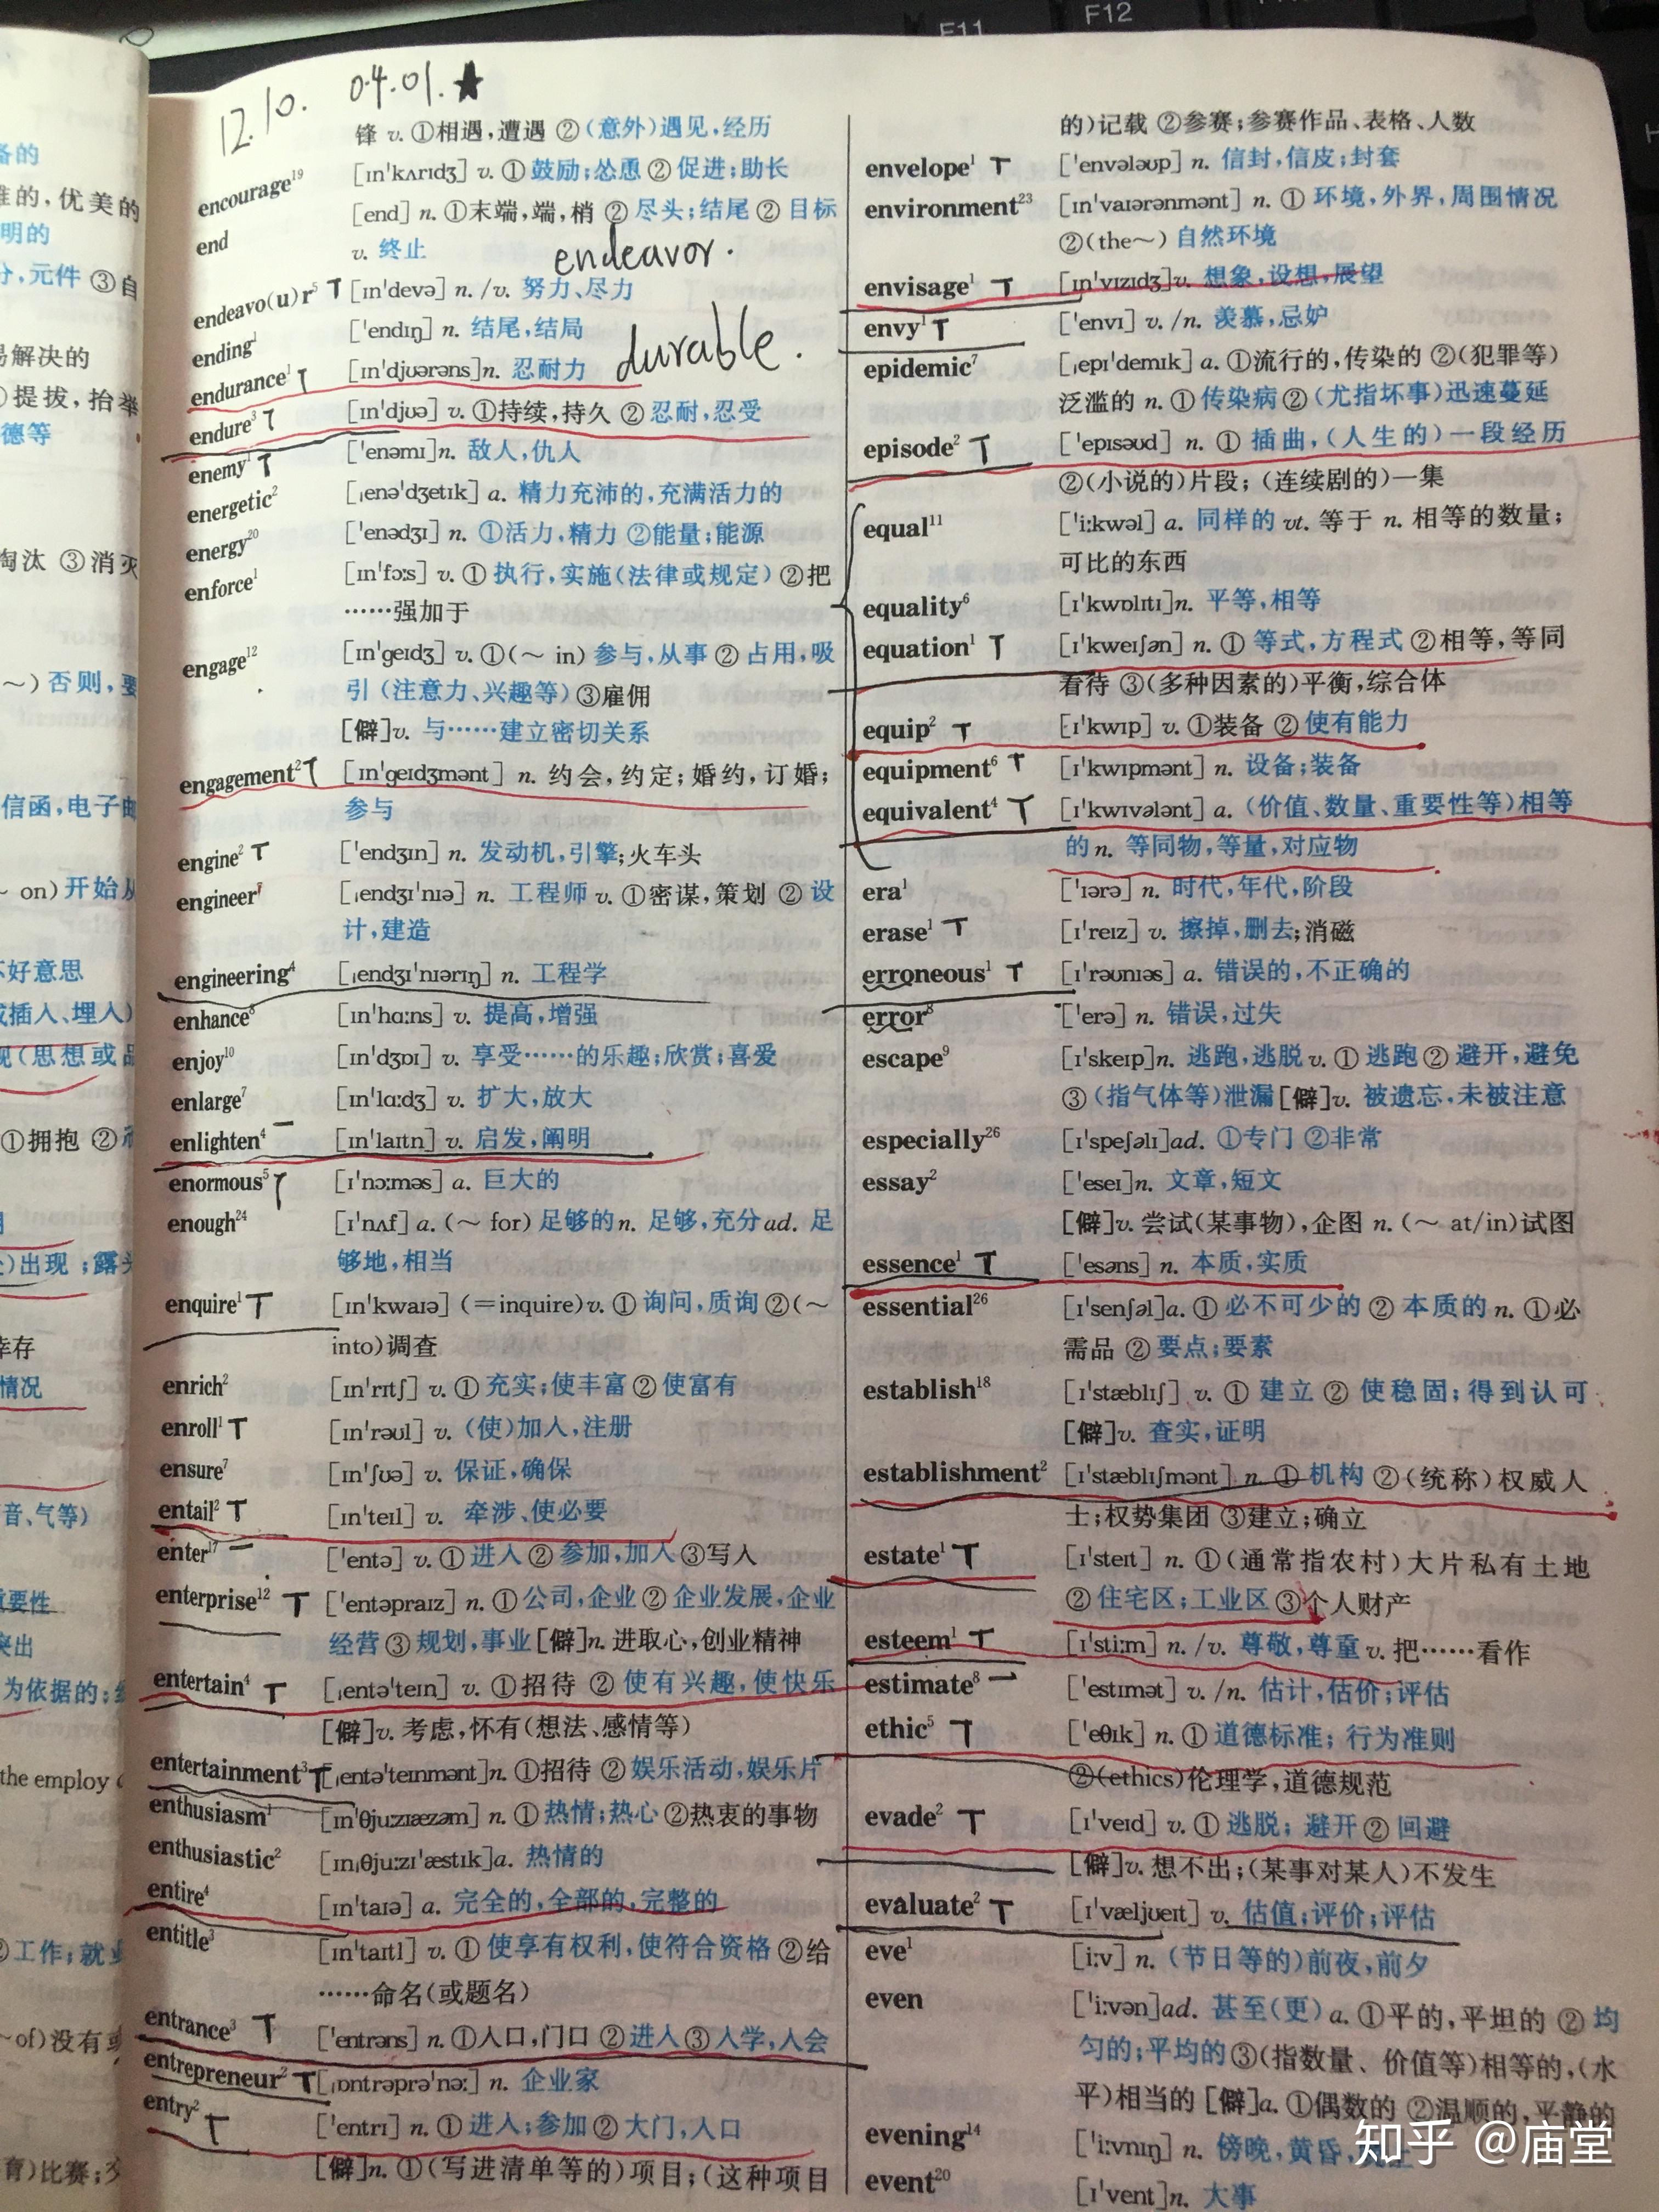 F11
F12
12.10.
04.01.★
备的
锋 v. ①相遇,遭遇 ②(意外)遇见,经历
雅的,优美的
encourage¹⁹ [ɪnˈkʌrɪdʒ] v. ①鼓励;怂恿 ②促进;助长
明的
end [end] n. ①末端,端,梢 ②尽头;结尾 ②目标
v. 终止
endeavor.
分,元件 ③自
endeavo(u)r⁵ T [ɪnˈdevə] n. /v. 努力、尽力
ending¹ [ˈendɪŋ] n. 结尾,结局
易解决的
durable.
endurance¹ T [ɪnˈdjuərəns]n. 忍耐力
提拔,抬举
endure³ T [ɪnˈdjuə] v. ①持续,持久 ②忍耐,忍受
德等
enemy¹ T [ˈenəmɪ]n. 敌人,仇人
energetic² [ˌenəˈdʒetɪk] a. 精力充沛的,充满活力的
energy²⁰ [ˈenədʒɪ] n. ①活力,精力 ②能量;能源
淘汰 ③消灭
enforce¹ [ɪnˈfɔːs] v. ①执行,实施(法律或规定) ②把
……强加于
engage¹² [ɪnˈgeɪdʒ] v. ①(~ in) 参与,从事 ②占用,吸
~) 否则,要
引 (注意力、兴趣等) ③雇佣
[僻]v. 与……建立密切关系
engagement² T [ɪnˈgeɪdʒmənt] n. 约会,约定;婚约,订婚;
信函,电子邮
参与
engine² T [ˈendʒɪn] n. 发动机,引擎;火车头
~ on)开始从
engineer⁷ [ˌendʒɪˈnɪə] n. 工程师 v. ①密谋,策划 ②设
计,建造
不好意思
engineering⁴ [ˌendʒɪˈnɪərɪŋ] n. 工程学
或插入、埋入)
enhance⁶ [ɪnˈhɑːns] v. 提高,增强
现(思想或品
enjoy¹⁰ [ɪnˈdʒɔɪ] v. 享受……的乐趣;欣赏;喜爱
enlarge⁷ [ɪnˈlɑːdʒ] v. 扩大,放大
①拥抱 ②
enlighten⁴ [ɪnˈlaɪtn] v. 启发,阐明
enormous⁵ T [ɪˈnɔːməs] a. 巨大的
enough²⁴ [ɪˈnʌf] a. (~ for) 足够的 n. 足够,充分 ad. 足
)出现;露头
够地,相当
enquire¹ T [ɪnˈkwaɪə] (=inquire)v. ①询问,质询 ②(~
幸存
into)调查
情况
enrich² [ɪnˈrɪtʃ] v. ①充实;使丰富 ②使富有
enroll¹ T [ɪnˈrəʊl] v. (使)加入,注册
ensure⁷ [ɪnˈʃʊə] v. 保证,确保
音、气等)
entail² T [ɪnˈteɪl] v. 牵涉、使必要
enter¹⁷ [ˈentə] v. ①进入 ②参加,加入 ③写入
重要性
enterprise¹² T [ˈentəpraɪz] n. ①公司,企业 ②企业发展,企业
突出
经营 ③规划,事业[僻]n. 进取心,创业精神
为依据的;
entertain⁴ T [ˌentəˈteɪn] v. ①招待 ②使有兴趣,使快乐
[僻]v. 考虑,怀有(想法、感情等)
the employ
entertainment³ T [ˌentəˈteɪnmənt]n. ①招待 ②娱乐活动,娱乐片
enthusiasm¹ [ɪnˈθjuːzɪæzəm] n. ①热情;热心 ②热衷的事物
enthusiastic² [ɪnˌθjuːzɪˈæstɪk]a. 热情的
entire⁴ [ɪnˈtaɪə] a. 完全的,全部的,完整的
②工作;就业
entitle³ [ɪnˈtaɪtl] v. ①使享有权利,使符合资格 ②给
……命名(或题名)
~of)没有或
entrance³ T [ˈentrəns] n. ①入口,门口 ②进入 ③入学,入会
entrepreneur² T [ˌɒntrəprəˈnɜː] n. 企业家
entry² T [ˈentrɪ] n. ①进入;参加 ②大门,入口
育)比赛;交
[僻]n. ①(写进清单等的)项目;(这种项目
的)记载 ②参赛;参赛作品、表格、人数
envelope¹ T [ˈenvələʊp] n. 信封,信皮;封套
environment²³ [ɪnˈvaɪərənmənt] n. ①环境,外界,周围情况
②(the~) 自然环境
envisage¹ T [ɪnˈvɪzɪdʒ]v. 想象,设想,展望
envy¹ T [ˈenvɪ] v. /n. 羡慕,忌妒
epidemic⁷ [ˌepɪˈdemɪk] a. ①流行的,传染的 ②(犯罪等)
泛滥的 n. ①传染病 ②(尤指坏事)迅速蔓延
episode² T [ˈepɪsəʊd] n. ①插曲,(人生的)一段经历
②(小说的)片段;(连续剧的)一集
equal¹¹ [ˈiːkwəl] a. 同样的 vt. 等于 n. 相等的数量;
可比的东西
equality⁶ [ɪˈkwɒlɪtɪ]n. 平等,相等
equation¹ T [ɪˈkweɪʃən] n. ①等式,方程式 ②相等,等同
看待 ③(多种因素的)平衡,综合体
equip² T [ɪˈkwɪp] v. ①装备 ②使有能力
equipment⁶ T [ɪˈkwɪpmənt] n. 设备;装备
equivalent⁴ T [ɪˈkwɪvələnt] a. (价值、数量、重要性等)相等
的 n. 等同物,等量,对应物
era¹ [ˈɪərə] n. 时代,年代,阶段
erase¹ T [ɪˈreɪz] v. 擦掉,删去;消磁
erroneous¹ T [ɪˈrəʊnɪəs] a. 错误的,不正确的
error⁸ [ˈerə] n. 错误,过失
escape⁹ [ɪˈskeɪp]n. 逃跑,逃脱 v. ①逃跑 ②避开,避免
③(指气体等)泄漏[僻]v. 被遗忘,未被注意
especially²⁶ [ɪˈspeʃəlɪ]ad. ①专门 ②非常
essay² [ˈeseɪ]n. 文章,短文
[僻]v. 尝试(某事物),企图 n. (~ at/in)试图
essence¹ T [ˈesəns] n. 本质,实质
essential²⁶ [ɪˈsenʃəl]a. ①必不可少的 ②本质的 n. ①必
需品 ②要点;要素
establish¹⁸ [ɪˈstæblɪʃ] v. ①建立 ②使稳固;得到认可
[僻]v. 查实,证明
establishment² [ɪˈstæblɪʃmənt] n. ①机构 ②(统称)权威人
士;权势集团 ③建立;确立
estate¹ T [ɪˈsteɪt] n. ①(通常指农村)大片私有土地
②住宅区;工业区 ③个人财产
esteem¹ T [ɪˈstiːm] n. /v. 尊敬,尊重 v. 把……看作
estimate⁸ [ˈestɪmət] v. /n. 估计,估价;评估
ethic⁵ T [ˈeθɪk] n. ①道德标准; 行为准则
②(ethics)伦理学,道德规范
evade² T [ɪˈveɪd] v. ①逃脱; 避开 ②回避
[僻]v. 想不出;(某事对某人)不发生
evaluate² T [ɪˈvæljueɪt] v. 估值;评价;评估
eve¹ [iːv] n. (节日等的)前夜,前夕
even [ˈiːvən]ad. 甚至(更) a. ①平的,平坦的 ②均
匀的;平均的 ③(指数量、价值等)相等的,(水
平)相当的 [僻]a. ①偶数的 ②温顺的,平静的
evening¹⁴ [ˈiːvnɪŋ] n. 傍晚,黄昏,
event²⁰ [ɪˈvent]n. 大事
知乎 @庙堂